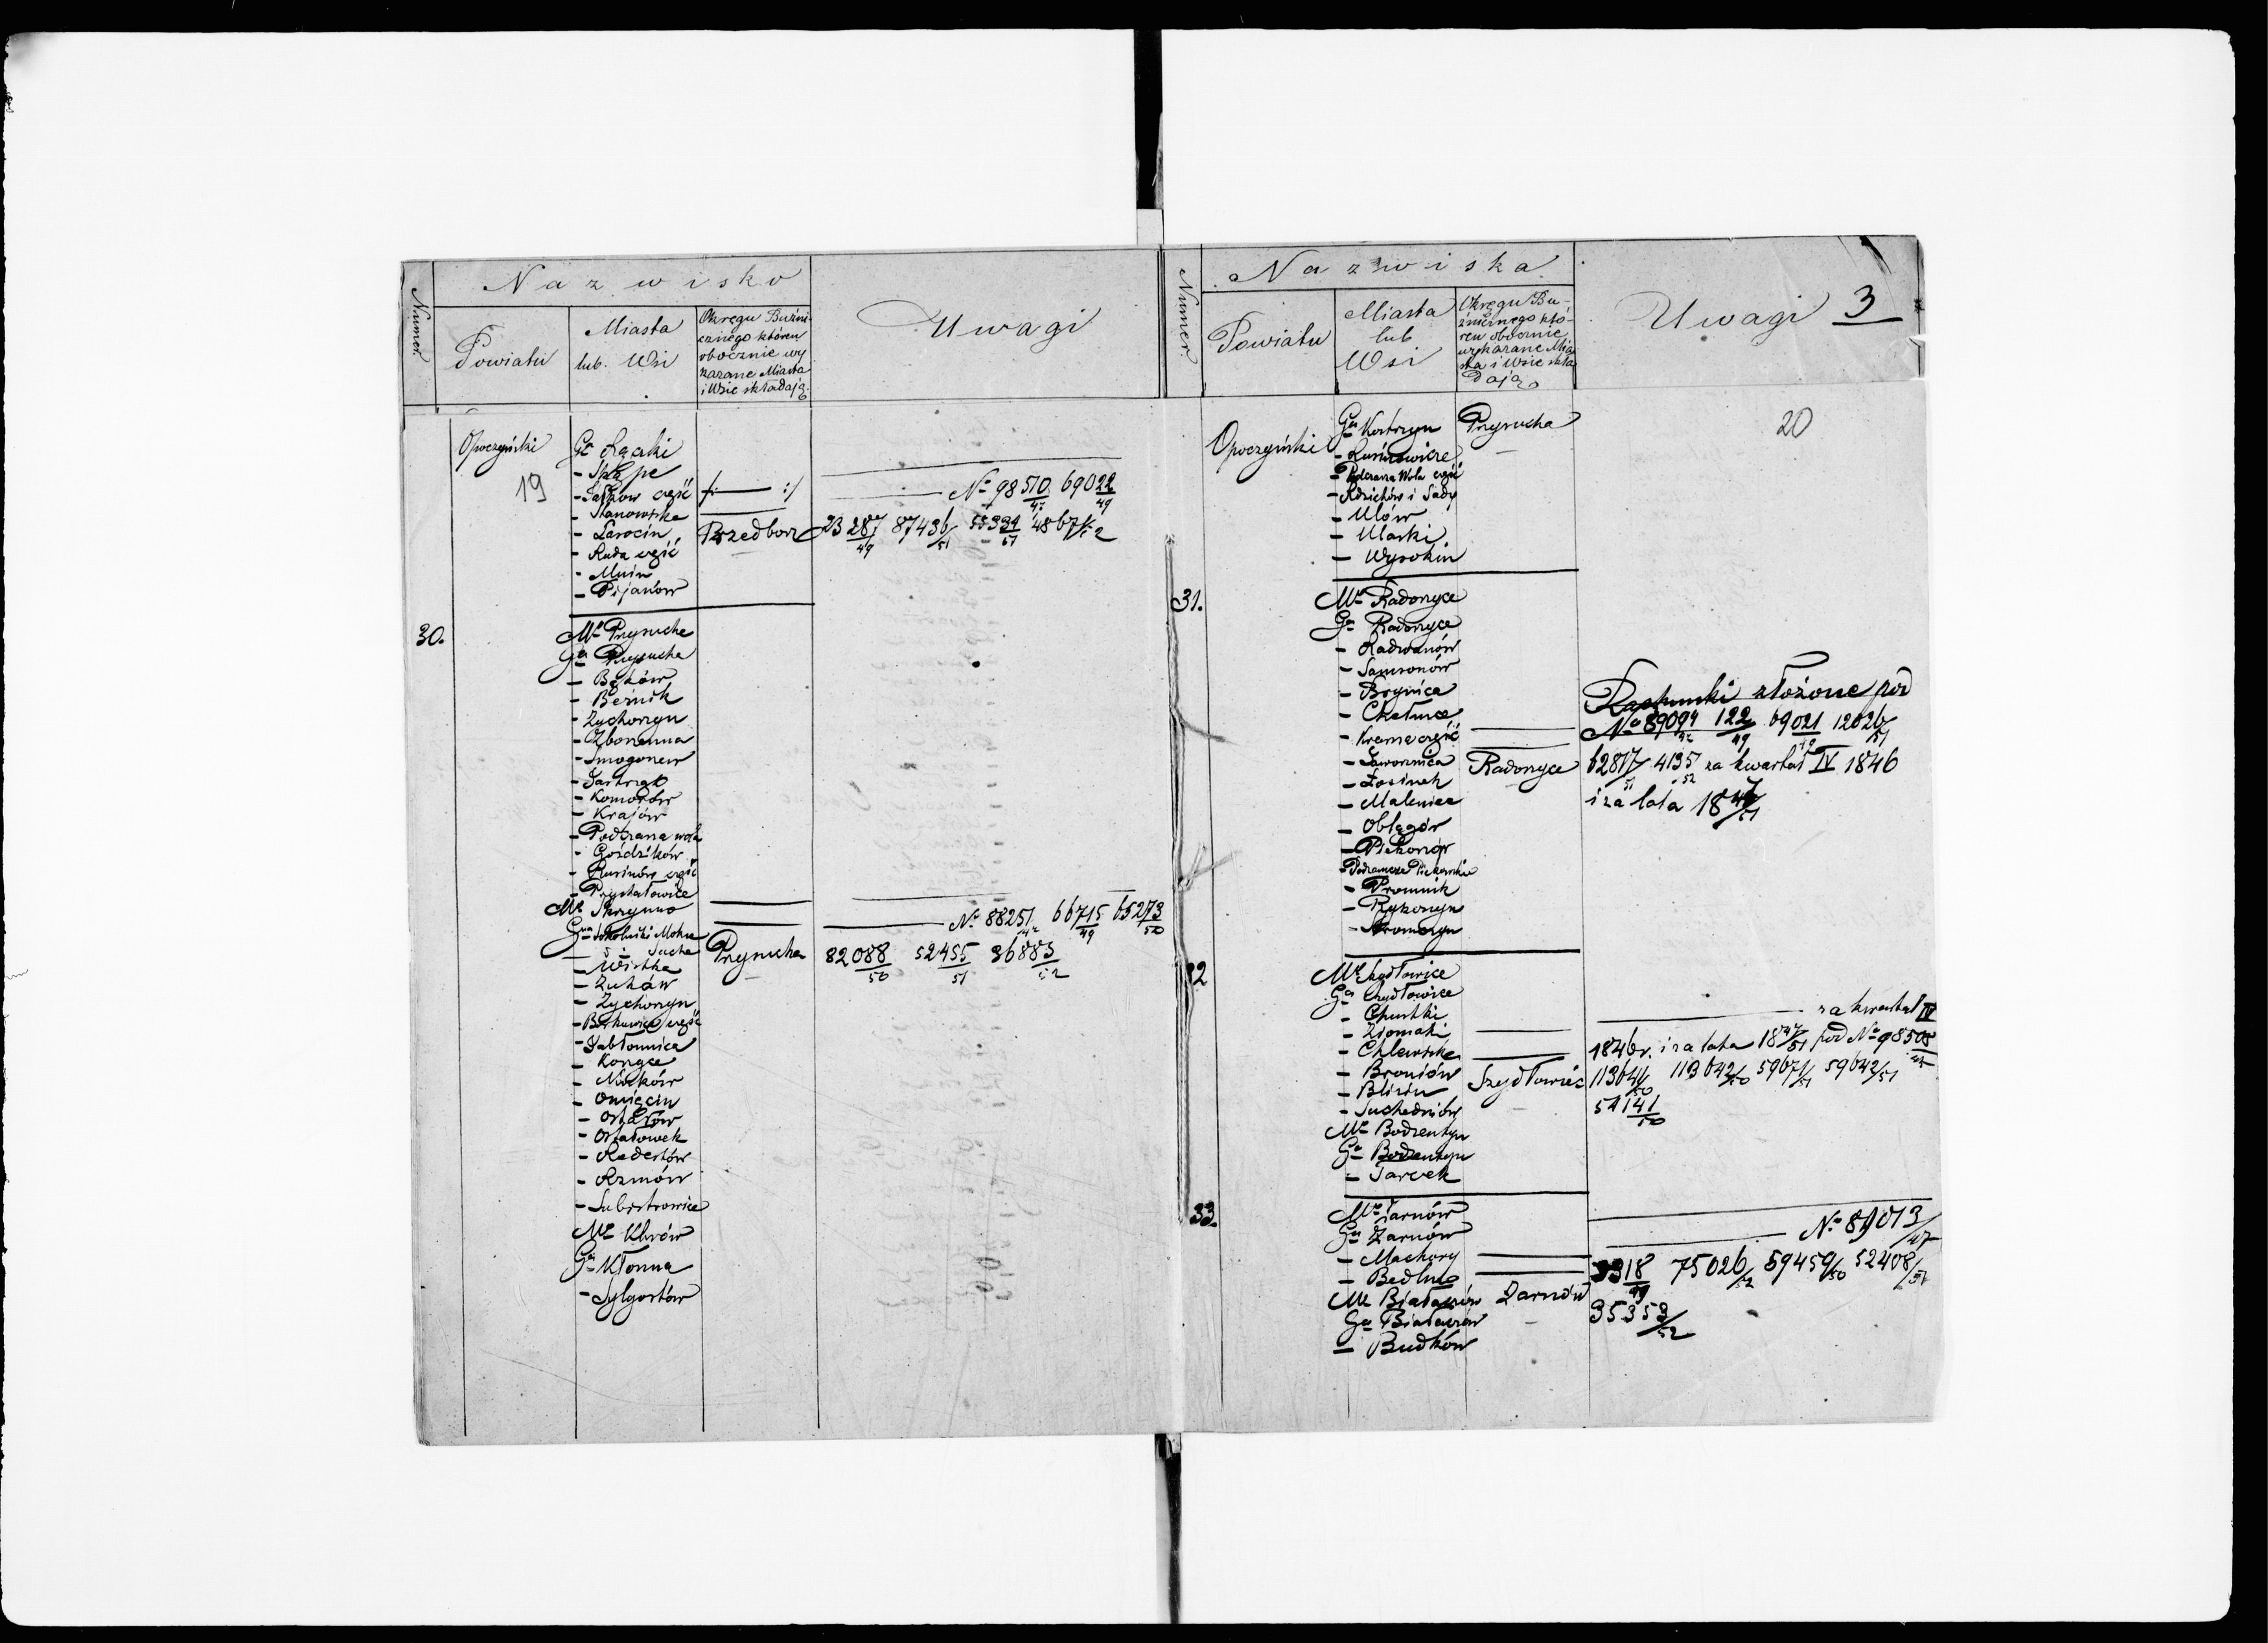 Numer
Nazwisko
Powiatu
Miasta
lub. Wsi
Okręgu Buźni-
cznego któren
obocznie wy
kazane Miasta
i Wsie składają.
Uwagi
Opoczyński
19
Gа Łączki
- Stanowska
- Jarocin
- Ruda część
- Mnin
- Pijanów
Przedborz
№ 98510/47 69022/49
23287/49 87436/51 48671/52
30.
Mto Przysucha
Gа Przysucha
- Bąków
- Beźnik
- Zychorzyn
- Zbożenna
- Smogorzew
- Jastrząb
- Komorów
- Krajów
- Podczasza wola
- Goździków
- Rusinów część
- Przystałowice
Mto Skrzynno
Gna Sokolniki Mokre
- Sucha
- Wistka
- Zuków
- Zychorzyn
- Borkowice część
- Jabłonnica
- Korzyce
- Ninków
- Omięcin
- Ostałów
- Ostałowek
- Radestów
- Rzuców
- Lubstrowice
Mto Klwów
Gа Kłonna
- Sylgostów
Przysucha
№ 88251/47 66715/49 65273/50
82088/50 52455/51 36883/52
Numer
Nazwiska
Powiatu
Miasta
lub
Wsi
Okręgu Bu-
źnicznego któ-
ren obocznie
wykazane Mia
sta i Wsie skła
dają
Uwagi
3
20
Opoczyński
Gа Kostrzyn
- Rusinowice
- Podczasza Wola część
- Rdzichów i Sady
- Ulów
- Wlaski
- Wysokin
Przysucha
31.
Mto Radoszyce
Gа Radoszyce
- Radwanów
- Samsonów
- Brynica
- Chełmce
- Krasna część
- Jaworznica
- Łosinek
- Maleniec
- Oblęgór
- Piekoszów
- Podzamcze Piekoszowskie
- Promnik
- Rykoszyn
- Stromczyn
Radoszyce
Rachunki złożone pod
№ 89094/47 122/49 69021/49 12026/51
62817/51 4195/52 za kwartał IV 1846
i za lata 1847/51
32
Mto Szydłowiec
Gа Szydłowiec
- Chustki
- Zdomaki
- Chlewska
- Broniów
- Bliżin
- Suchedniów
Mto Bodzentyn
Gа Bodzentyn
- Tarczek
Szydłowiec
za kwartał IV
1846 r. i za lata 1847/51 pod № 98508/47
113641/50 113642/50 59671/51 59642/51
54141/50
33.
Mto Żarnów
Gа Żarnów
- Machory
- Bedlno
Mto Białaczów
Gа Białaczów
- Budków
Żarnów
№ 89013/47
3318/49 75026/52 59459/50 52408/51
35353/52